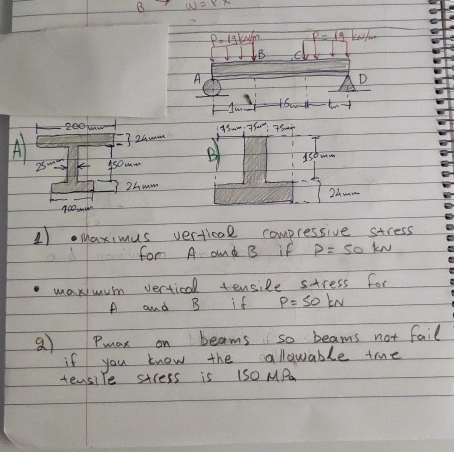 B → W = P x
P= 19 kN/m P= 19 kN/m
B C
A D
1m 1.5m 1m
200 mm
A) 24mm
25mm 150mm
24mm
100mm
75mm 75mm 75mm
B) 150mm
24mm
1) • maximus vertical compressive stress
for A and B if P = 50 kN
• maximum vertical tensile stress for
A and B if P= 50 kN
2) Pmax on beams so beams not fail
if you know the allowable true
tensile stress is 150 MPa